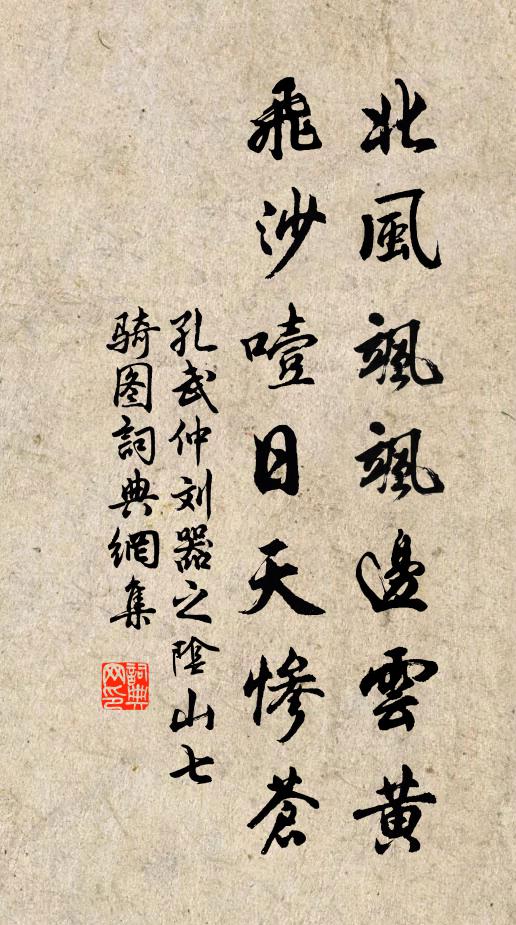 北風颯颯邊雲黄
飛沙噎日天慘蒼
孔武仲刘器之陰山七
骑图詞典網集
詞典网印